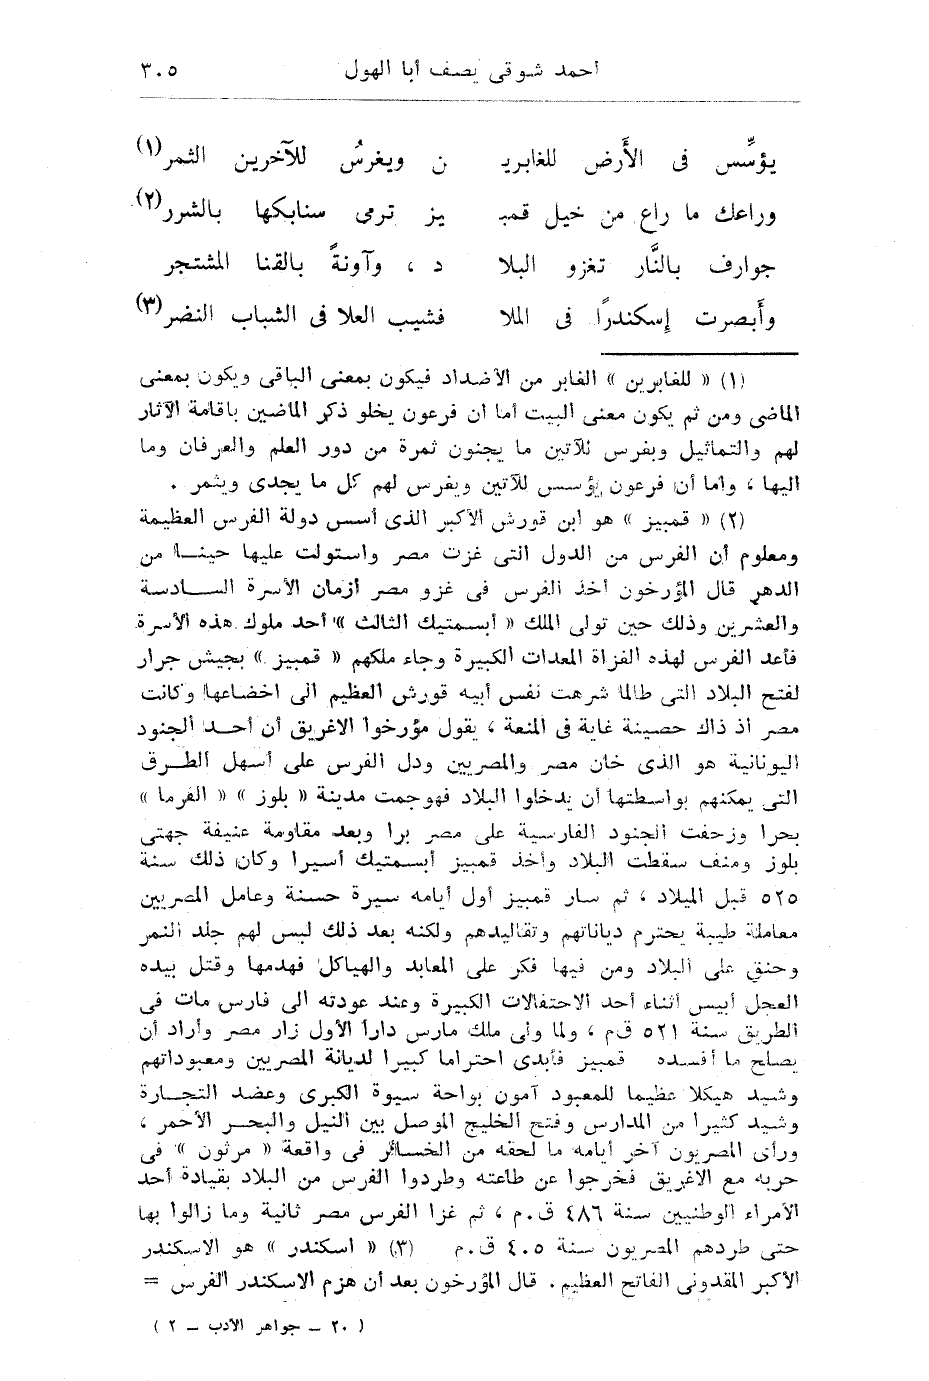 أحمد شوقى يصف أبا الهول ٣٠٥
يؤسِّس فى الأَرض للغابريـ ـن ويغرسُ للآخرين الثمر(١)
وراعك ما راع من خيل قمبـ ـيز ترمى سنابكها بالشرر(٢)
جوارف بالنَّار تغزو البلا د ، وآونةً بالقنا المشتجر
وأَبصرت إسكندرًا فى الملا فشيب العلا فى الشباب النضر(٣)
(١) « للغابرين » الغابر من الأضداد فيكون بمعنى الباقى ويكون بمعنى
الماضى ومن ثم يكون معنى البيت أما ان فرعون يخلو ذكر الماضين باقامة الآثار
لهم والتماثيل ويفرس للآتين ما يجنون ثمرة من دور العلم والعرفان وما
اليها ، واما أن فرعون يؤسس للآتين ويفرس لهم كل ما يجدى ويثمر .
(٢) « قمبيز » هو ابن قورش الأكبر الذى أسس دولة الفرس العظيمة
ومعلوم أن الفرس من الدول التى غزت مصر واستولت عليها حينا من
الدهر قال المؤرخون أخذ الفرس فى غزو مصر أزمان الأسرة السادسة
والعشرين وذلك حين تولى الملك « أبسمتيك الثالث » أحد ملوك هذه الأسرة
فأعد الفرس لهذه الغزاة المعدات الكبيرة وجاء ملكهم « قمبيز » بجيش جرار
لفتح البلاد التى طالما شرهت نفس أبيه قورش العظيم الى اخضاعها وكانت
مصر اذ ذاك حصينة غاية فى المنعة ، يقول مؤرخوا الاغريق أن أحد الجنود
اليونانية هو الذى خان مصر والمصريين ودل الفرس على أسهل الطرق
التى يمكنهم بواسطتها أن يدخلوا البلاد فهوجمت مدينة « بلوز » « الفرما »
بحرا وزحفت الجنود الفارسية على مصر برا وبعد مقاومة عنيفة جهتى
بلوز ومنف سقطت البلاد وأخذ قمبيز أبسمتيك أسيرا وكان ذلك سنة
٥٢٥ قبل الميلاد ، ثم سار قمبيز أول أيامه سيرة حسنة وعامل المصريين
معاملة طيبة يحترم دياناتهم وتقاليدهم ولكنه بعد ذلك لبس لهم جلد النمر
وحنق على البلاد ومن فيها فكر على المعابد والهياكل فهدمها وقتل بيده
العجل أبيس أثناء أحد الاحتفالات الكبيرة وعند عودته الى فارس مات فى
الطريق سنة ٥٢١ ق.م ، ولما ولى ملك مارس دارا الأول زار مصر وأراد أن
يصلح ما أفسده قمبيز فأبدى احتراما كبيرا لديانة المصريين ومعبوداتهم
وشيد هيكلا عظيما للمعبود آمون بواحة سيوة الكبرى وعضد التجارة
وشيد كثيرا من المدارس وفتح الخليج الموصل بين النيل والبحر الأحمر ،
ورأى المصريون آخر أيامه ما لحقه من الخسائر فى واقعة « مرثون » فى
حربه مع الاغريق فخرجوا عن طاعته وطردوا الفرس من البلاد بقيادة أحد
الأمراء الوطنيين سنة ٤٨٦ ق.م ، ثم غزا الفرس مصر ثانية وما زالوا بها
حتى طردهم المصريون سنة ٤٠٥ ق.م (٣) « أسكندر » هو الاسكندر
الأكبر المقدونى الفاتح العظيم . قال المؤرخون بعد أن هزم الاسكندر الفرس =
( ٢٠ ــ جواهر الأدب ــ ٢ )